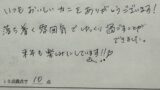 いつもおいしいカニをありがとうございます!
落ち着く雰囲気でゆっくり過ごすことが
できました。
来年も楽しみにしています!!
10点